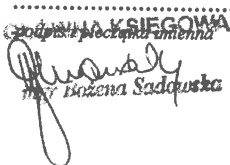 ..............................
GŁÓWNA KSIĘGOWA
podpis i pieczątka imienna
mgr Bożena Sadowska